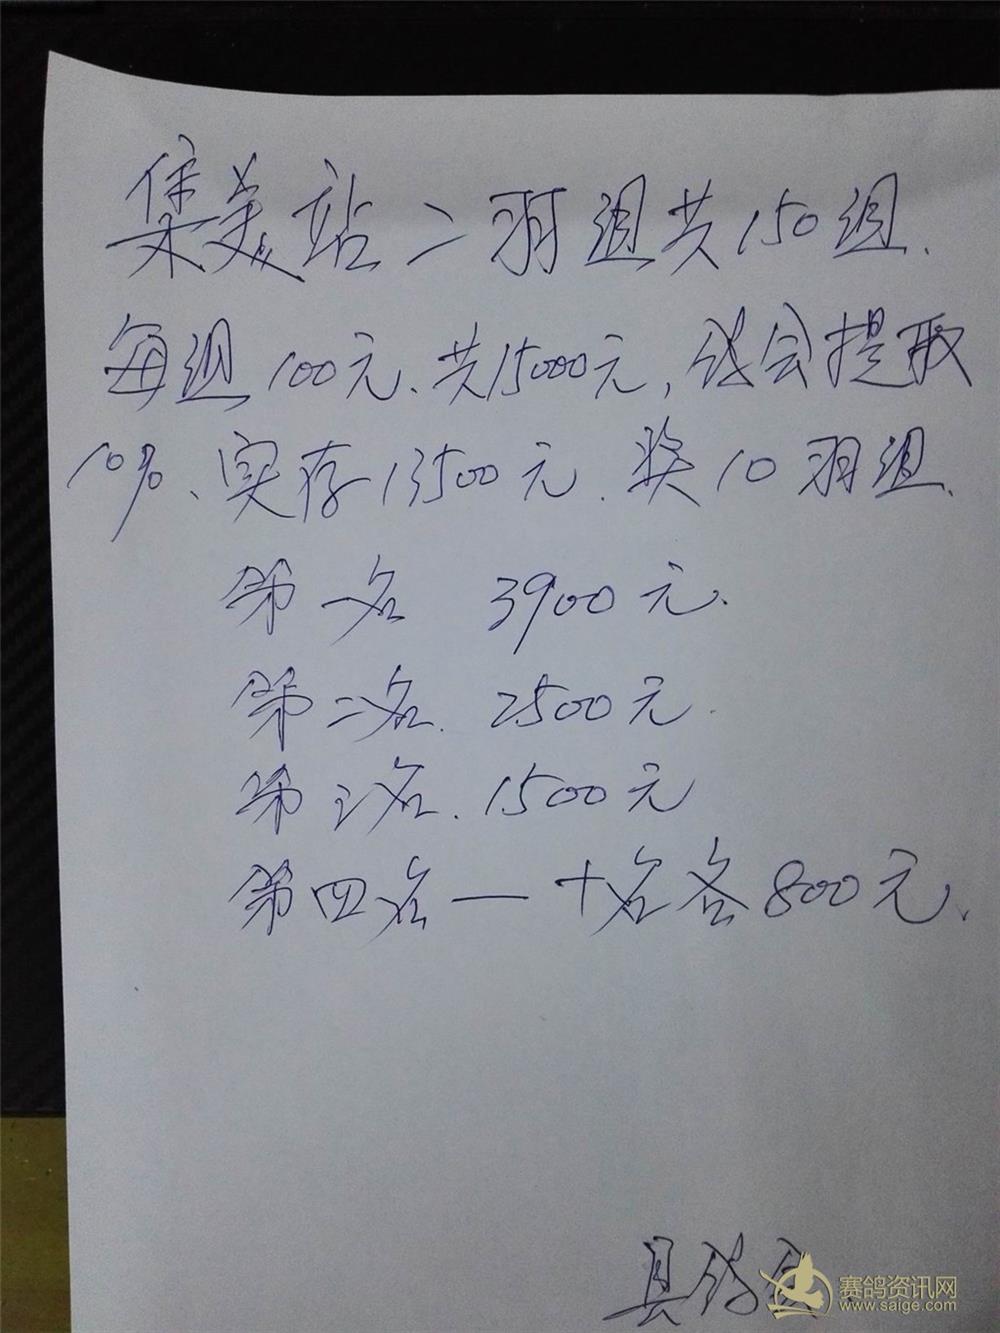 集美站二羽组共150组.
每组100元、共15000元,鸽会提取
10%、实存13500元.奖10羽组.
第一名 3900元.
第二名. 2500元.
第三名. 1500元
第四名一十名各800元、
县鸽会
赛鸽资讯网
www.saige.com